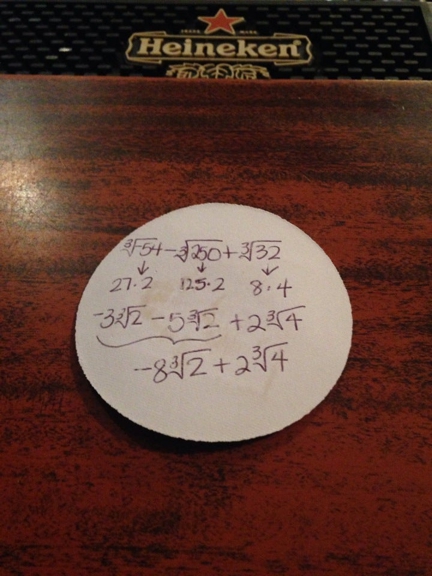 Heineken
∛-54 - ∛250 + ∛32
↓ ↓ ↓
27·2 125·2 8·4
-3∛2 - 5∛2 + 2∛4
-8∛2 + 2∛4